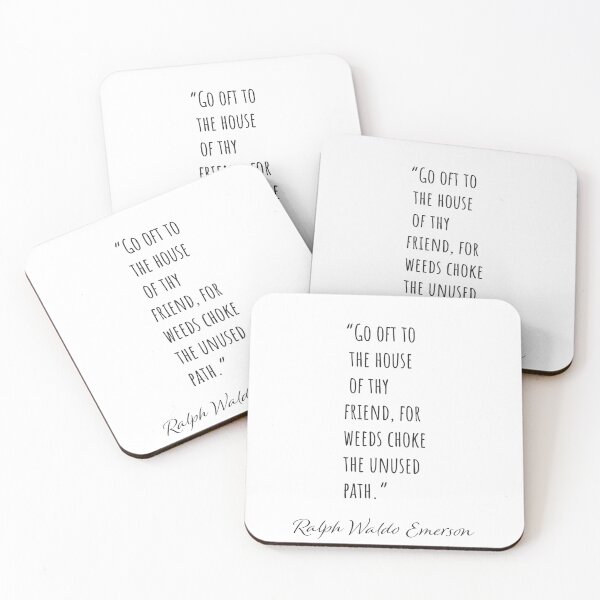 “Go oft to
the house
of thy
friend, for
“Go oft to
the house
of thy
friend, for
weeds choke
the unused
“Go oft to
the house
of thy
friend, for
weeds choke
the unused
path.”
Ralph Waldo
“Go oft to
the house
of thy
friend, for
weeds choke
the unused
path.”
Ralph Waldo Emerson